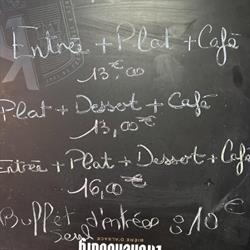 Entrée + Plat + Café
13,00 €
Plat + Dessert + Café
13,00 €
Entrée + Plat + Dessert + Café
16,00 €
Buffet d'entrées : 10 €
seul
BIÈRE D'ALSACE